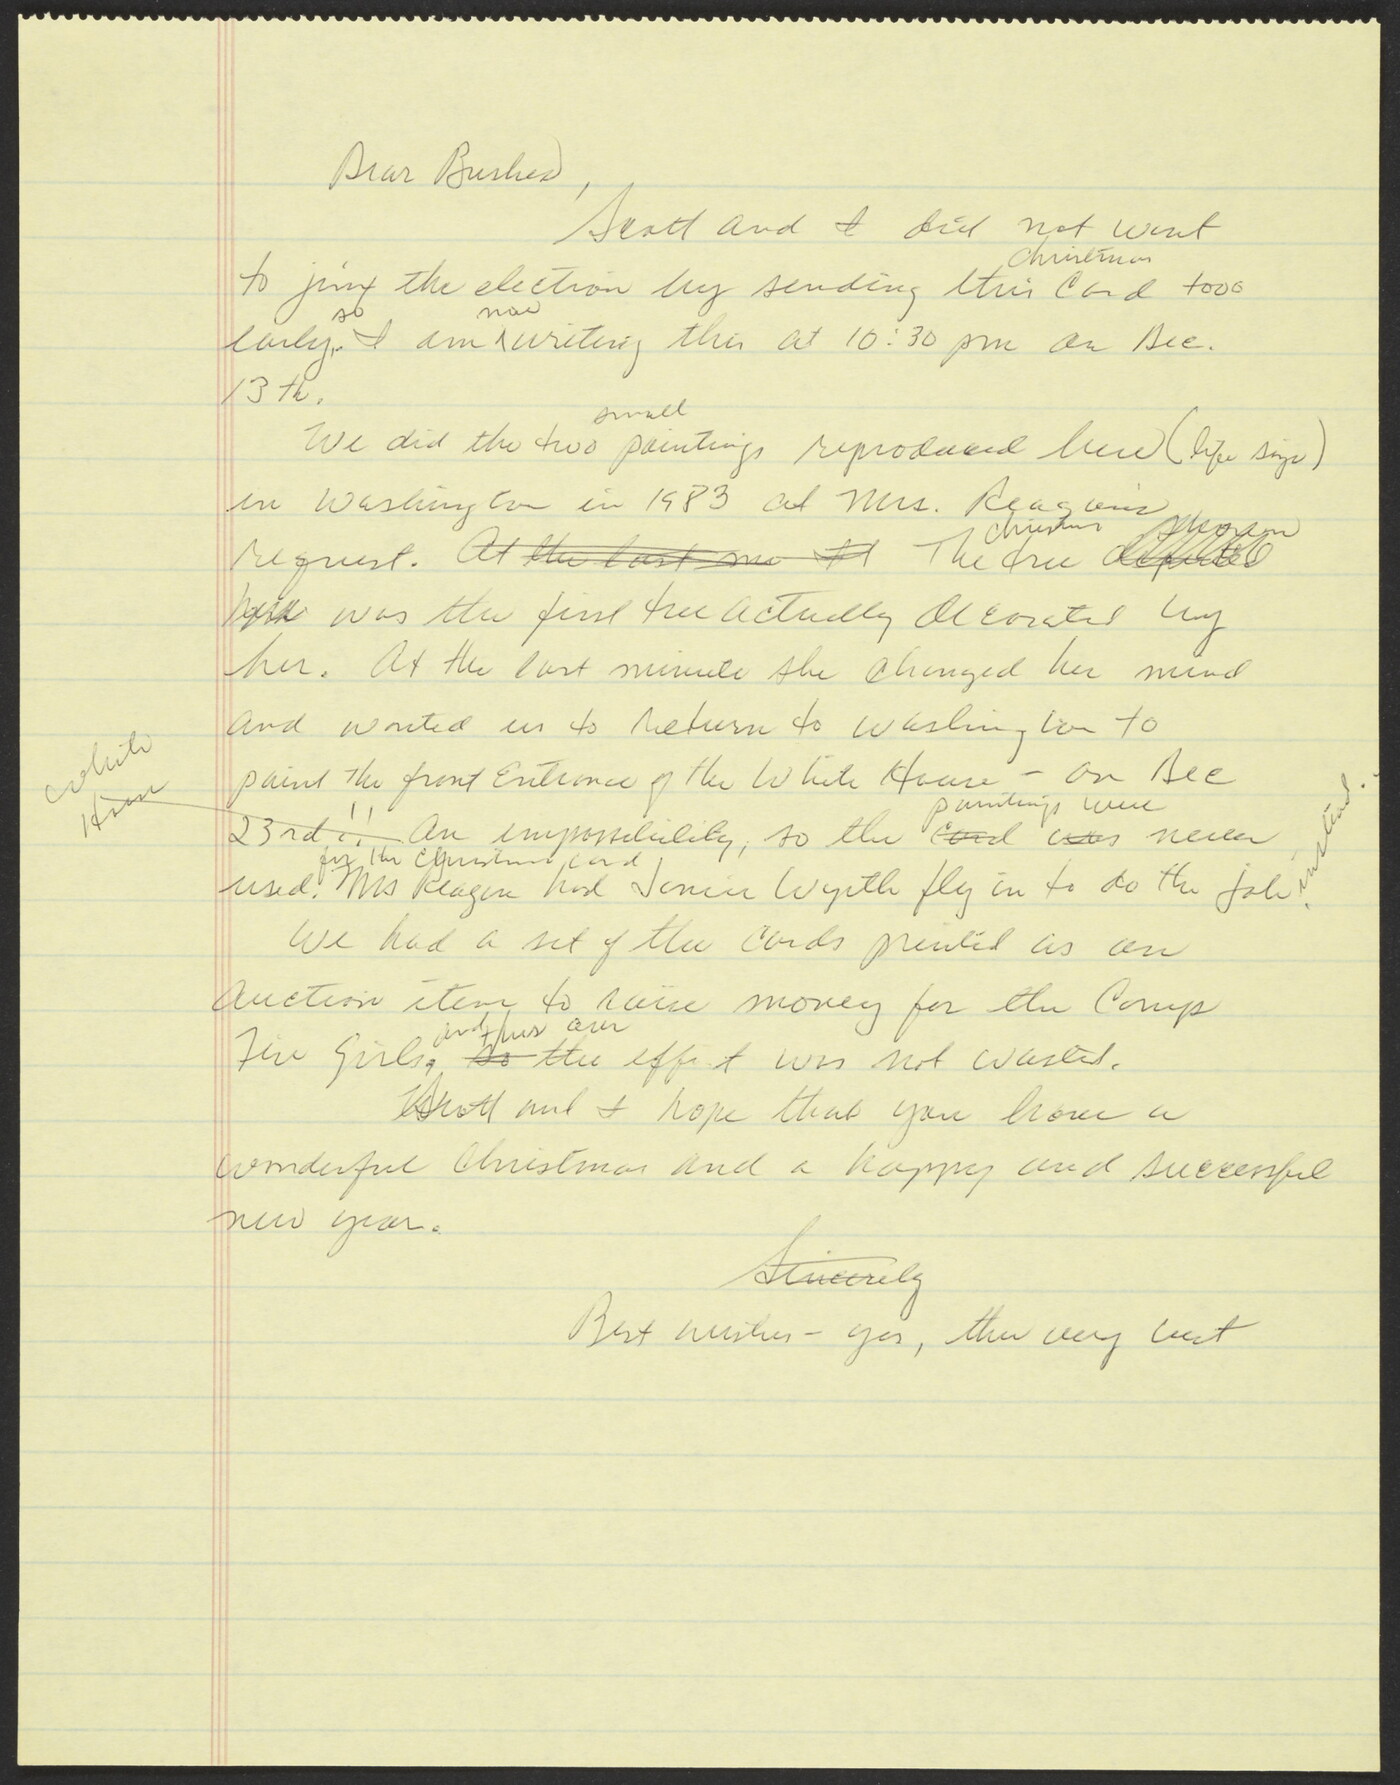 Dear Bushes,
Scott and I did not want
Christmas
to jinx the election by sending this card tooo
so now
early. I am writing this at 10:30 pm on Dec.
13th.
small
We did the two paintings reproduced here (life size)
in Washington in 1983 at Mrs. Reagan's
Christmas shown
request. At the last mo it The tree depicted
here was the first tree actually decorated by
her. At the last minute she changed her mind
and wanted us to return to Washington to
White
House
paint the front Entrance of the White House - on Dec
paintings were
23rd!! An impossibility, so the card was never
for the Christmas card
used. Mrs Reagan had Jamie Wyeth fly in to do the job instead.
We had a set of the cards printed as an
auction item to raise money for the Camp
and thus our
Fire Girls, so the effort was not wasted.
Scott and I hope that you have a
wonderful Christmas and a happy and successful
new year.
Sincerely
Best wishes - yes, the very best